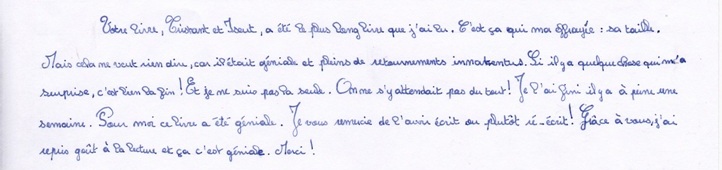 Votre livre, Tristant et Iseut, a été le plus long livre que j'ai lu. C'est ça qui ma effrayée : sa taille.
Mais cela ne veut rien dire, car il était géniale et pleins de retournements innatentus. Si il y a quelque chose qui m'a
surprise, c'est bien la fin ! Et je ne suis pas la seule. On ne s'y attendait pas du tout ! Je l'ai fini il y a à peine une
semaine. Pour moi ce livre a été géniale. Je vous remercie de l'avoir écrit ou plutôt ré-écrit ! Grâce à vous, j'ai
repis goût à la lecture et ça c'est géniale. Merci !